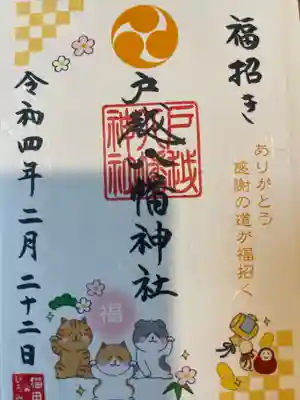 福招き
ありがとう
感謝の道が福招く
戸越八幡神社
戸越
八幡
神社
令和四年二月二十二日
福